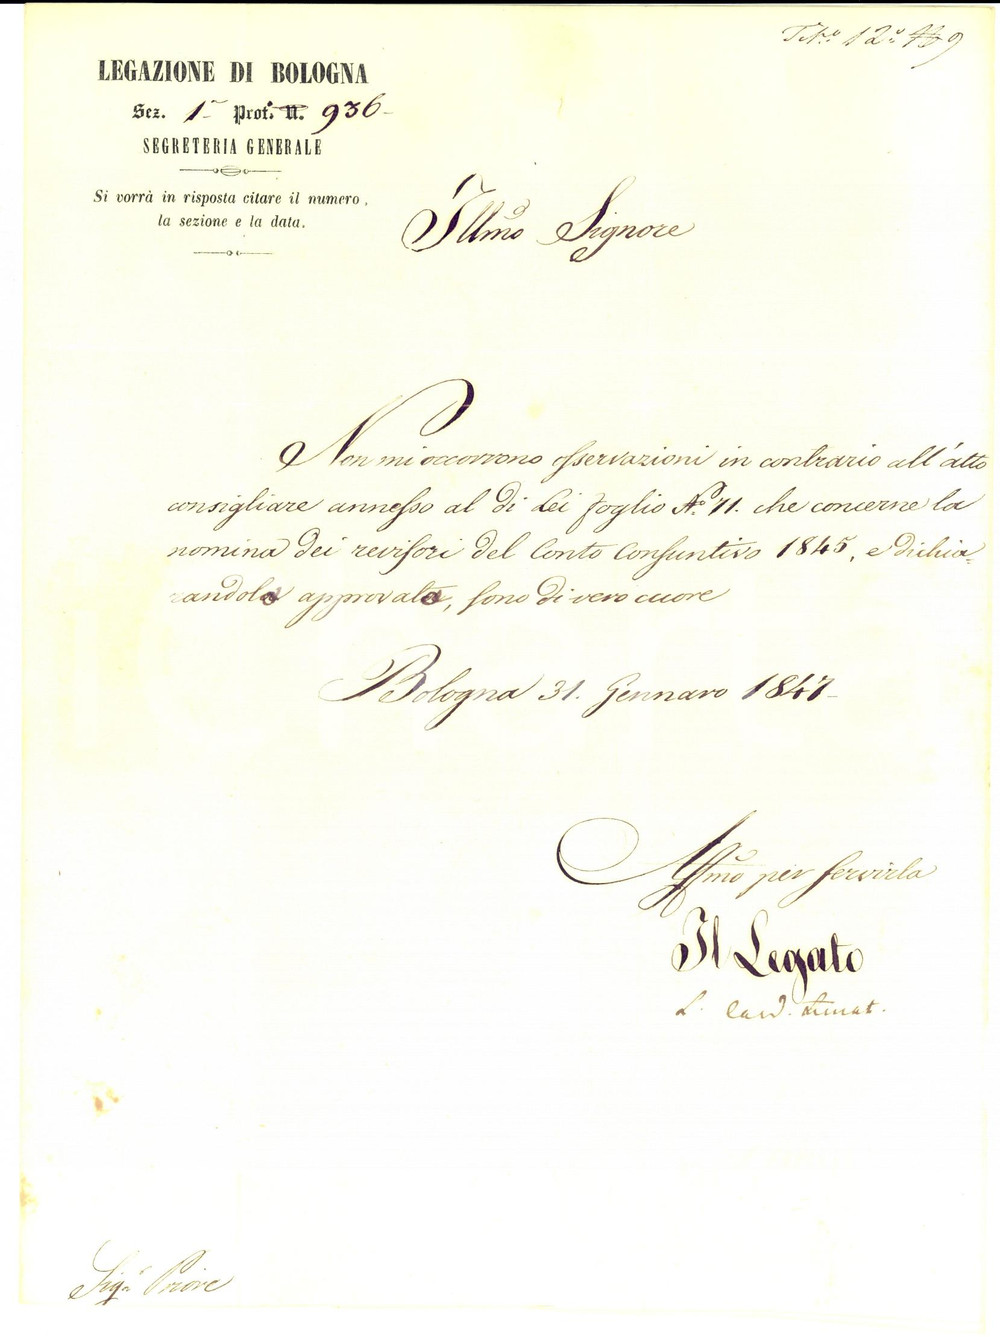 Tito. 12° 9
LEGAZIONE DI BOLOGNA
Sez. 1a Prot. N. 936
SEGRETERIA GENERALE
Si vorrà in risposta citare il numero,
la sezione e la data.
Illmo Signore
Non mi occorrono osservazioni in contrario all'atto
consigliare annesso al di Lei foglio No. 71. che concerne la
nomina dei revisori del Conto Consuntivo 1845, e dichia-
randola approvata, sono di vero cuore
Bologna 31. Gennaro 1847
Affmo per servirla
Il Legato
L. Card. Amat.
Sigr Priore